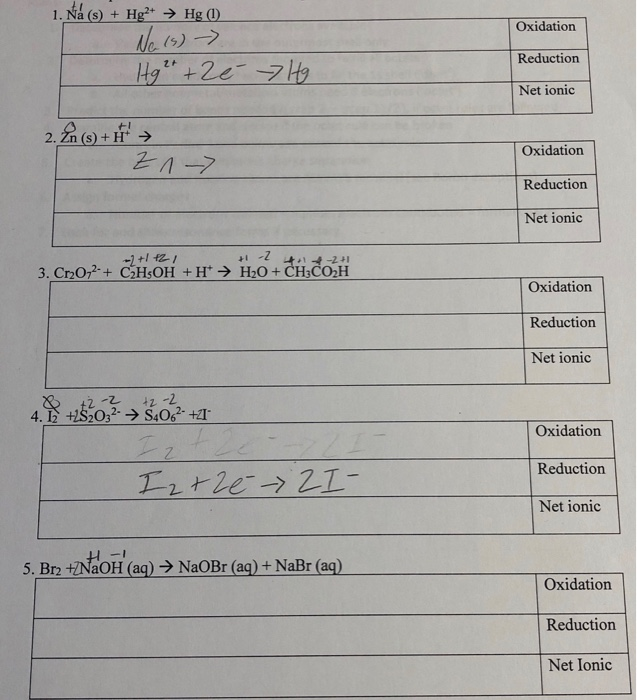 +1
1. Na (s) + Hg²⁺ → Hg (l)
Na (s) → Oxidation
Hg²⁺ + 2e⁻ → Hg Reduction
Net ionic
0 +1
2. Zn (s) + H⁺ →
Zn → Oxidation
Reduction
Net ionic
+1 -2
3. Cr₂O₇²⁻ + C₂H₅OH + H⁺ → H₂O + CH₃CO₂H
Oxidation
Reduction
Net ionic
+2 -2 +2 -2
4. I₂ +2S₂O₃²⁻ → S₄O₆²⁻ +2I⁻
I₂ + 2e⁻ → 2I⁻ Oxidation
I₂ + 2e⁻ → 2I⁻ Reduction
Net ionic
+1 -1
5. Br₂ +2NaOH (aq) → NaOBr (aq) + NaBr (aq)
Oxidation
Reduction
Net Ionic